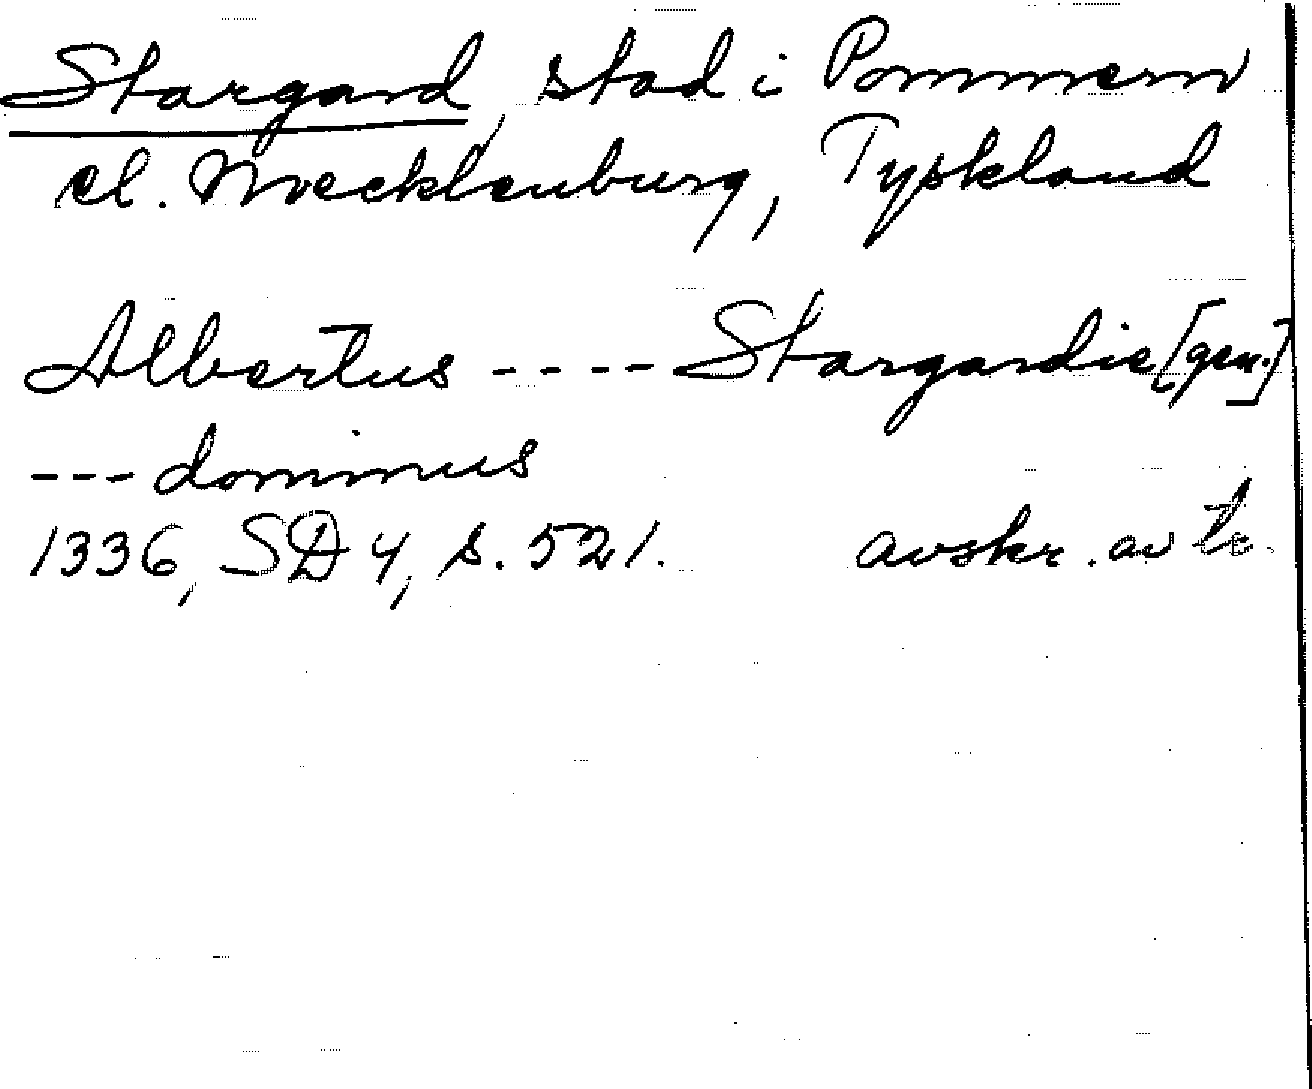 Stargard, stad i Pommern
el. Mecklenburg, Tyskland
Albertus ---- Stargardie [gen.]
--- dominus
1336, SD 4, s. 521. avskr. av